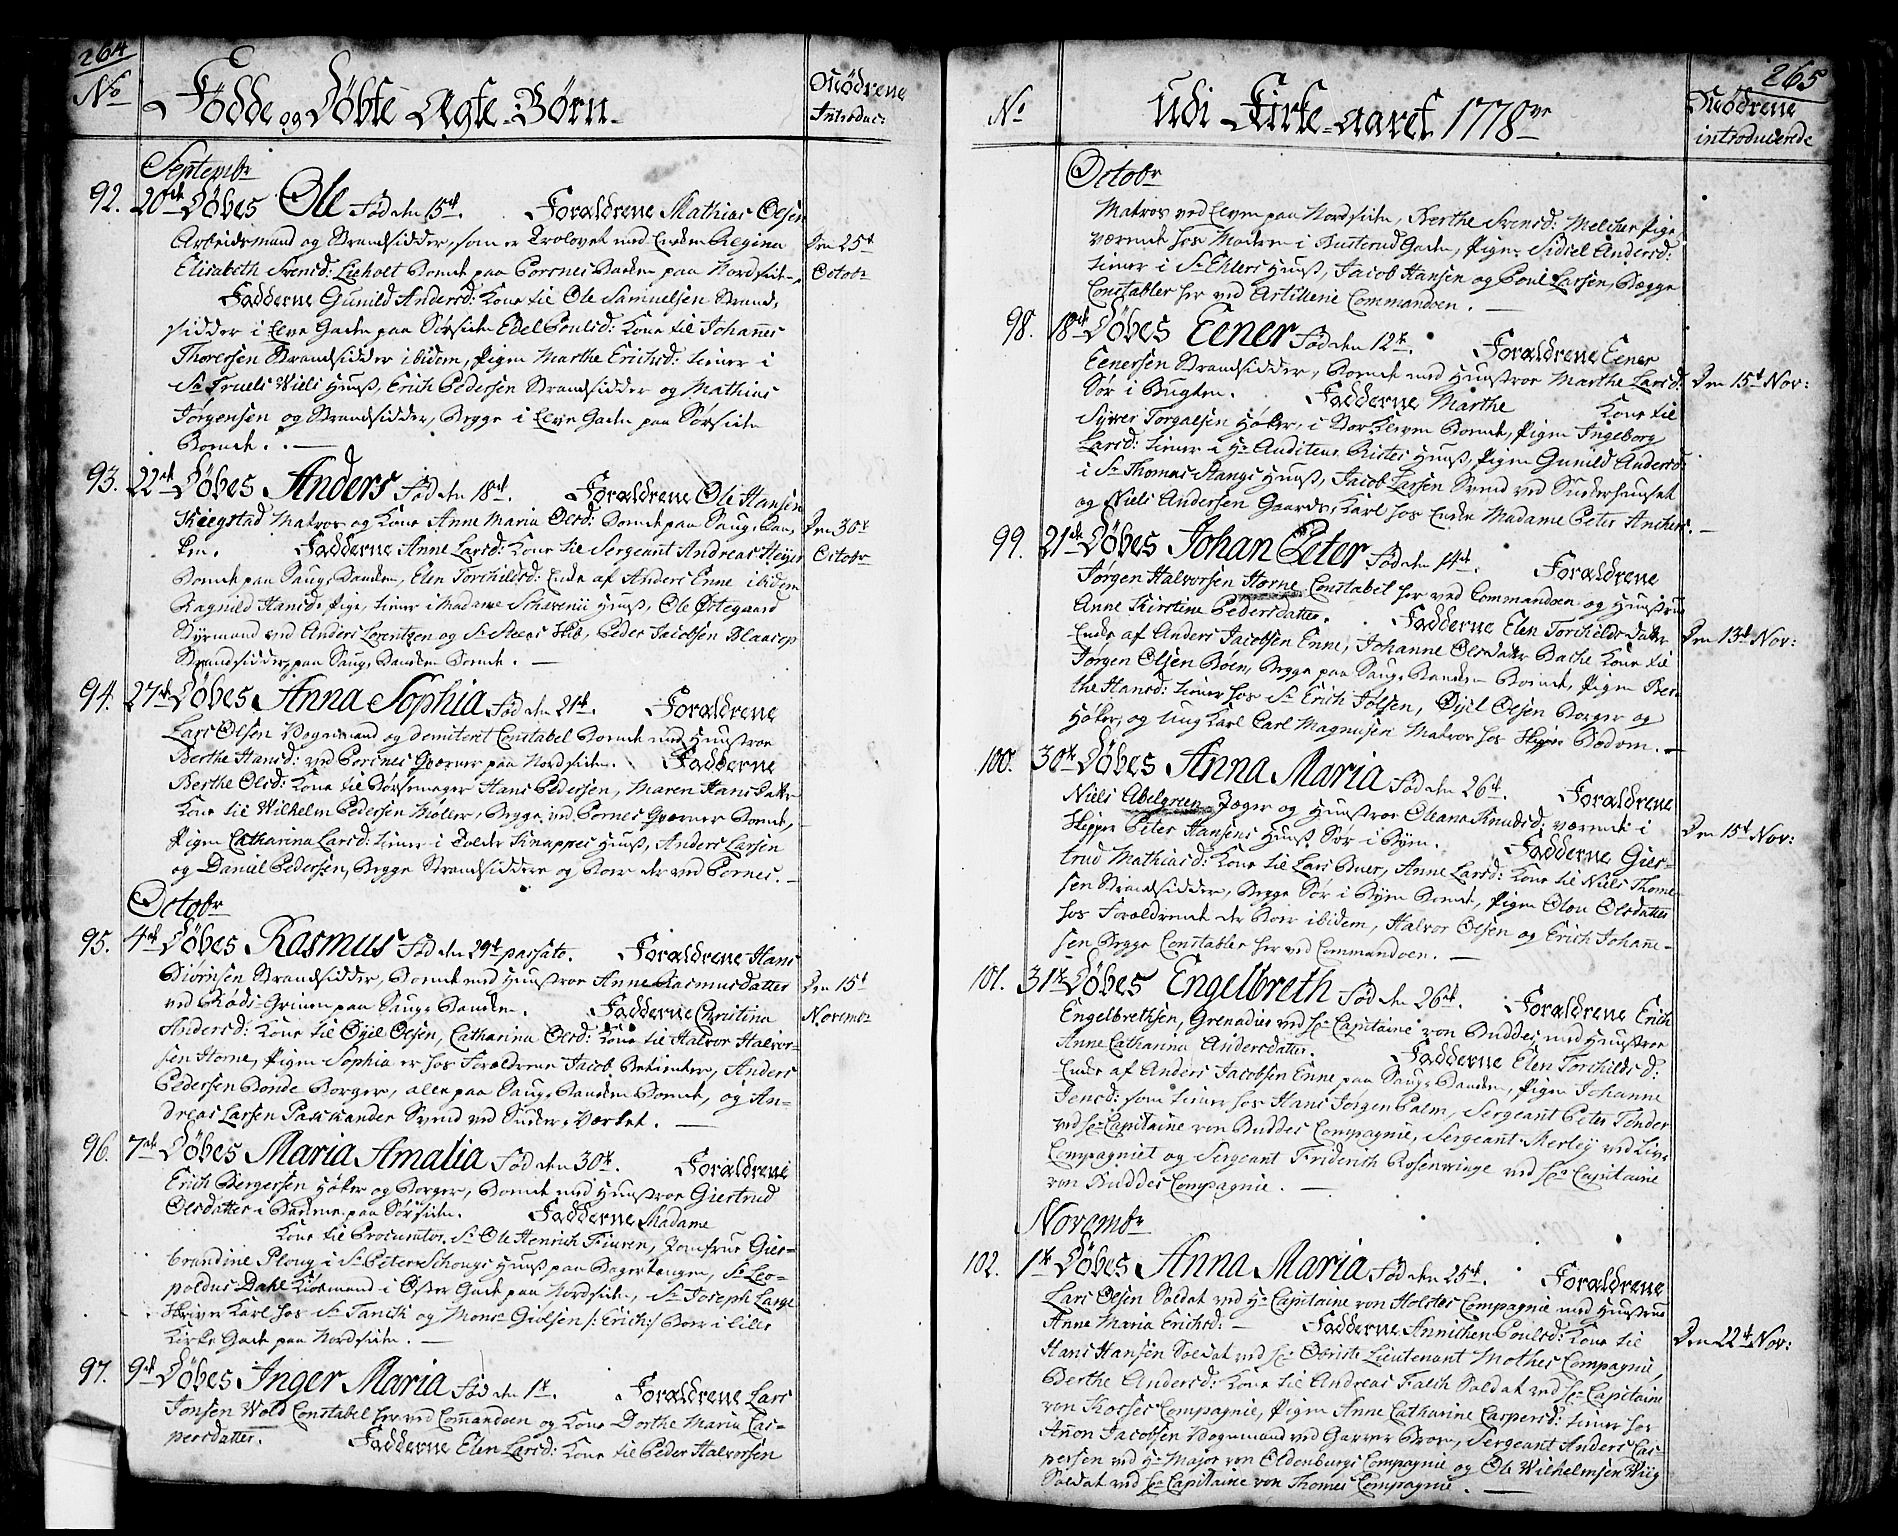 264
No
Födde og Döbte Ægte-Börn.
Mödrene
Introduc:
Septembr
92. 20de Döbes Ole Föd den 15de. Forældrene Mathias Olsen
Arbeidsmand og Strandsidder, som er trolovet med Enken Regina
Den 25de
Elisabeth Svensd: Lieholt Boende paa Porsnes Banken paa Nordsiden,
Octobr
Fadderne Gunild Andersd: Kone til Ole Samuelsen Strand,
sidder i Elve Gaden paa Sörsiden Edel Poulsd: Kone til Johannes
Thoresen Strandsidder ibidem, Pigen Marthe Erichsd: tiener i
Sr Truels Wiels Huus, Erich Pedersen Strandsidder og Mathias
Jörgensen og Strandsidder, Begge i Elve Gaden paa Sörsiden
Boende.
93. 22de Döbes Anders Föd den 18de. Forældrene Ole Hansen
Matros og Kone Anne Maria Olsd: Boende paa Saug Ban,
Den 30te
ken. Fadderne Anne Larsd: Kone til Sergeant Andreas Heyer
Octobr
Boende paa Saug Banken, Elen Torchildsd: Enke af Anders Enne ibidem
Ragnild Hansd: Pige, tiener i Madame Huus, Ole Östegaard
Styrmand ved Anders Lorentzen og Sr Skib, Peder Jacobsen Blaasop
Strandsidder, paa Saug Banken Boende.
94. 27de Döbes Anna Sophia Föd den 21de. Forældrene
Lars Olsen Vognmand og demiterit Constabel Boende med Huustroe
Berthe Hansd: ved Porsnes Qværner paa Nordsiden. Fadderne
Berthe Olsd: Kone til Börsemager Hans Pedersen, Maren Hans Datter
Kone til Wilhelm Pedersen Möller, Begge ved Pornes Qværner Boende,
Pigen Catharina Larsd: tiener i Tolder Knappes Huus, Anders Larsen
og Daniel Pedersen, Begge Strandsiddere og Boer der ved Pornes.
Octobr
95. 4de Döbes Rasmus Föd den 29de passato. Forældrene Hans
Biörnsen Strandsidder, Boende med Huustroe Anne Rasmusdatter
Den 15de
ved Röds-Grinen paa Saug Banken. Fadderne Christina
Novembr
Andersd: Kone til Öyel Olsen, Catharina Olsd: Kone til Halvor Halvor-
sen Horne, Pigen Sophia er hos Forældrene Jacob Betienter, Anders
Pedersen Bonde Borger, alle paa Saug Banken Boende, og An-
dreas Larsen Svend ved Sukker-Værket.
96. 7de Döbes Maria Amalia Föd den 30te. Forældrene
Erich Bergersen Höker og Borger, Boende med Huustroe Giertrud
Olsdatter i Bakken paa Sörsiden. Fadderne Madame
Kone til Procurator Sr Ole Henrich Fiuren, Jomfrue Gier-
brandine Ploug i Sr Peter Schougs Huus paa Bagertangen, Sr Leo-
poldus Dahl Kiöbmand i Öster Gade paa Nordsiden, Sr Joseph Lange
Skriver Karl hos Sr Tanck og Monsr Giölsen /:Erich:/ Boer i lille
Kirke Gade paa Nordsiden.
97. 9de Döbes Inger Maria Föd den 1te. Forældrene Lars
Jonsen Wold Constabel her ved Comandoen og Kone Dorthe Maria Cas-
persdatter. Fadderne Elen Larsd: Kone til Peder Halvorsen
265
No
udi Kirke-aaret 1778ve
Mödrene
introducerede
Octobr
Matros ved Elven paa Nordsiden, Berthe Svensd: Melcher Pige,
værende hos Moderen i Busterud Gaden, Pigen Sidsel Andersd:
tiener i Sr Ehlers Huus, Jacob Hansen og Poul Larsen, Begge
Constabler her ved Artillerie Commandoen.
98. 18de Döbes Eener Föd den 12te. Forældrene Eener
Eenersen Strandsidder, Boende med Huustroe Marthe Larsd:
Den 15de Nov:
Sör i Bugten. Fadderne Marthe Kone til
Syver Torgalsen Höker, i Boende, Pigen Ingeborg
Larsd: tiener i Hr Auditeur Ristes Huus, Pigen Gunild Andersd:
i Sr Thomas Stangs Huus, Jacob Larsen Svend ved Sukkerhuuset
og Niels Andersen Gaards Karl hos Enke Madame Peter Anchers.
99. 21de Döbes Johan Peter Föd den 14de. Forældrene
Jörgen Halvorsen Horne Constabel her ved Commandoen og Huustrue
Anne Kirstine Pedersdatter. Fadderne Elen Torchilds Datter
Den 13de Nov:
Enke af Anders Jacobsen Enne, Johanne Olsdatter Bache Kone til
Jörgen Olsen Böen, Begge paa Saug Banken Boende, Pigen Ber-
the Hansd: tiener hos Sr Erich Jölsen, Öyel Olsen Borger og
Höker, og Ung Karl Carl Magnusen Matros hos Skipper Bodom.
100. 30te Döbes Anna Maria Föd den 26de. Forældrene
Niels Abelgreen Jæger og Huustroe Oleana Knudsd: værende i
Den 15de Nov:
Skipper Peter Hansens Huus Sör i Byen. Fadderne Gier-
trud Mathiasd: Kone til Lars Buer, Anne Larsd: Kone til Niels Thome-
sen Strandsidder, Begge Sör i Byen Boende, Pigen Olou Olsdatter
hos Forældrene der Boer ibidem, Halvor Olsen og Erich Johane-
sen Begge Constabler her ved Commandoen.
101. 31te Döbes Engelbreth Föd den 26de. Forældrene Erich
Engelbrethsen, Grenadier ved Hr Capitaine von Buddes, med Huustroe
Anne Catharina Andersdatter. Fadderne Elen Torchilds D:
Enke af Anders Jacobsen Enne paa Saug Banken, Pigen Johanne
Jensd: som tiener hos Hans Jörgen Palm, Sergeant Peter Tönder
ved Hr Capitaine von Buddes Compagnie, Sergeant Merley ved Liv-
Compagniet og Sergeant Friderich Rosenwinge ved Hr Capitaine
von Buddes Compagnie.
Novembr
102. 1te Döbes Anna Maria Föd den 25de. Forældrene
Lars Olsen Soldat ved Hr Capitaine von Holstes Compagnie med Huustrue
Anne Maria Erichsd: Fadderne Annichen Poulsd: Kone til
Den 22de Nov:
Hans Hansen Soldat ved Hr Obriste Lieutenant Mothes Compagnie,
Berthe Andersd: Kone til Andreas Falch Soldat ved Hr Capitaine
von Kosses Compagnie, Pigen Anne Catharine Caspersd: tiener hos
Anon Jacobsen Vognmand ved Garver Broen, Sergeant Anders Cas-
persen ved Hr Major von Oldenburgs Compagnie og Ole Wilhelmsen Wiig
Soldat ved Hr Capitaine von Thomes Compagnie.